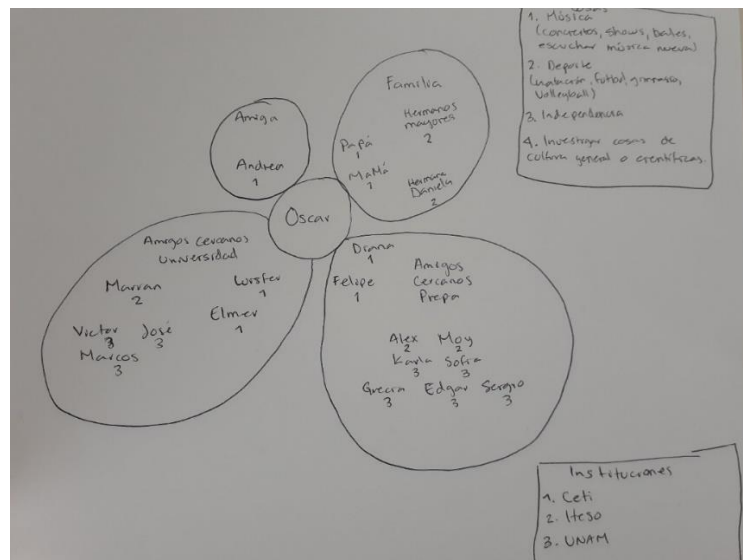 1. Música
(conciertos, shows, bailes,
escuchar música nueva)
2. Deporte
(natación, futbol, gimnasio,
Volleyball)
3. Independencia
4. Investigar cosas de
cultura general o científicas.
Familia
Hermanos
mayores
2
Papá
1
MaMá
1
Hermana
Daniela
2
Amiga
Andrea
1
Oscar
Amigos cercanos
Universidad
Marian
2
Luisfer
1
Elmer
1
Victor José
3 3
Marcos
3
Diana
1
Felipe
1
Amigos
Cercanos
Prepa
Alex Moy
2 2
Karla Sofia
3 3
Grecia Edgar Sergio
3 3 3
Instituciones
1. Ceti
2. Iteso
3. UNAM